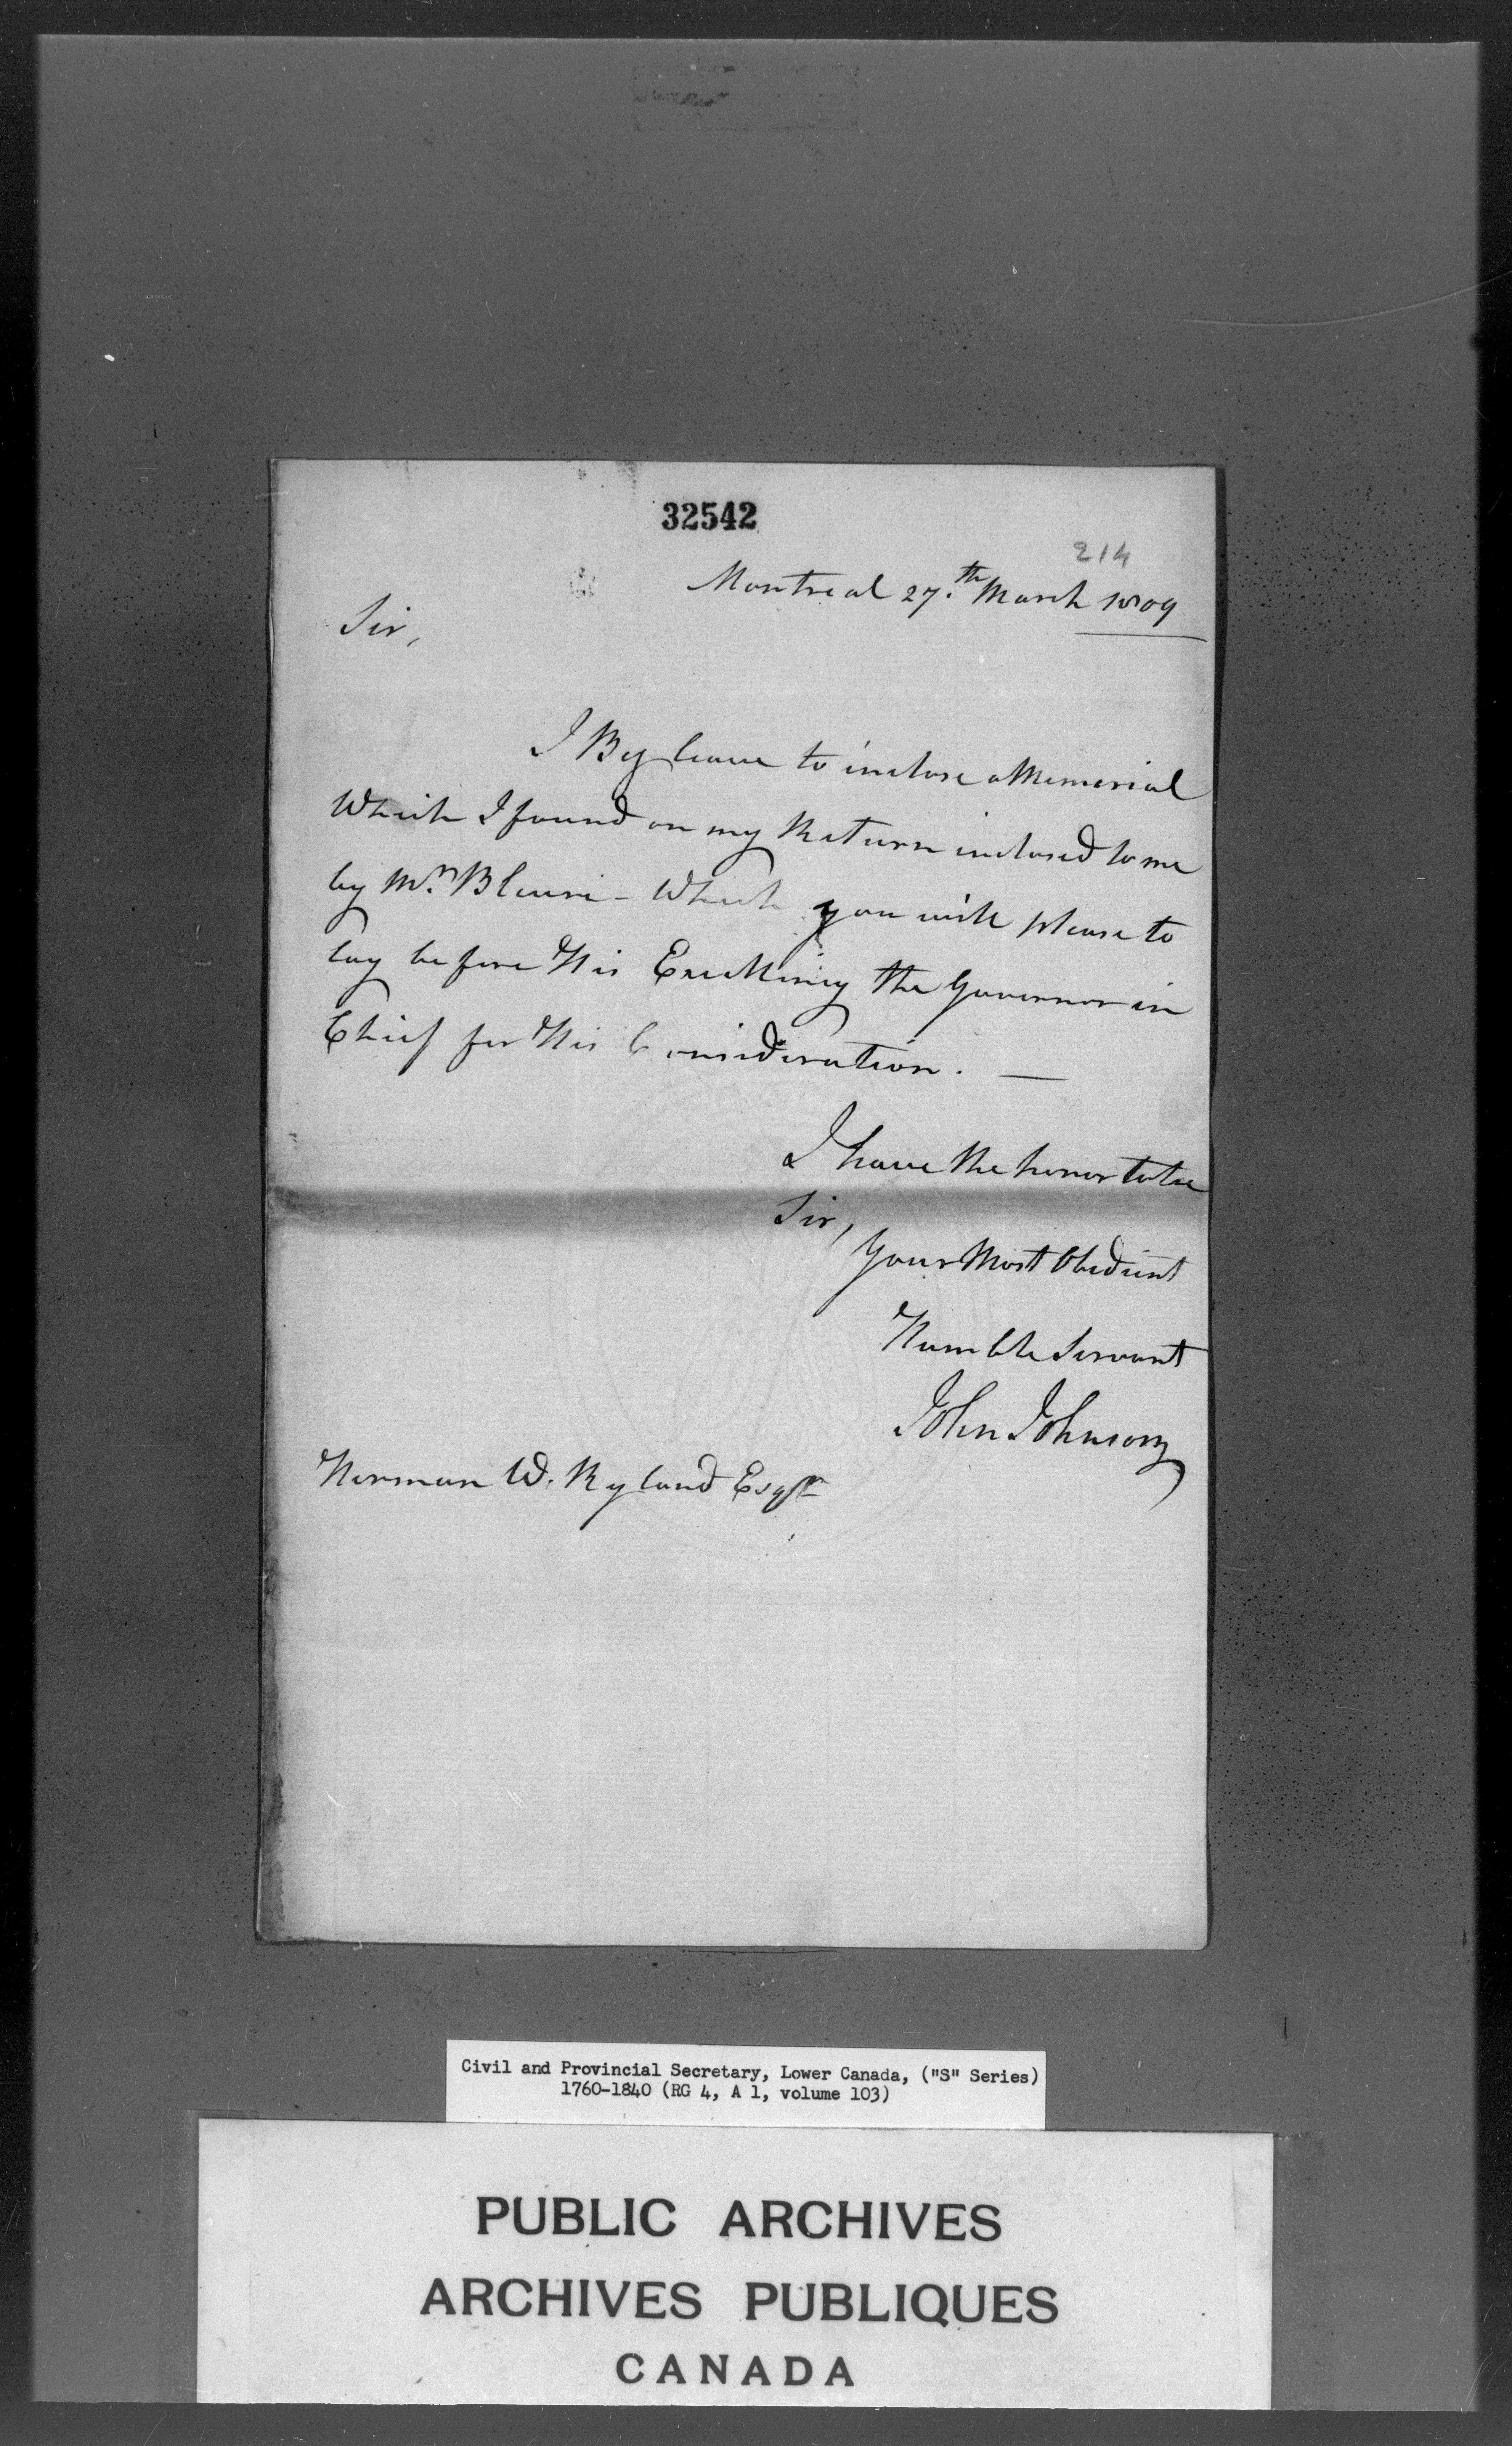 32542
214
Montreal 27.th March 1809
Sir,
I Beg leave to inclose a Memorial
Which I found on my Return inclosed to me
by Mr. Bleuri - Which you will please to
lay before His Excellency the Governor in
Chief for His Consideration. —
I have the honor to be
Sir,
Your Most Obedient
Humble Servant
John Johnson
Herman W. Ryland Esqr
Civil and Provincial Secretary, Lower Canada, ("S" Series)
1760-1840 (RG 4, A 1, volume 103)
PUBLIC ARCHIVES
ARCHIVES PUBLIQUES
CANADA